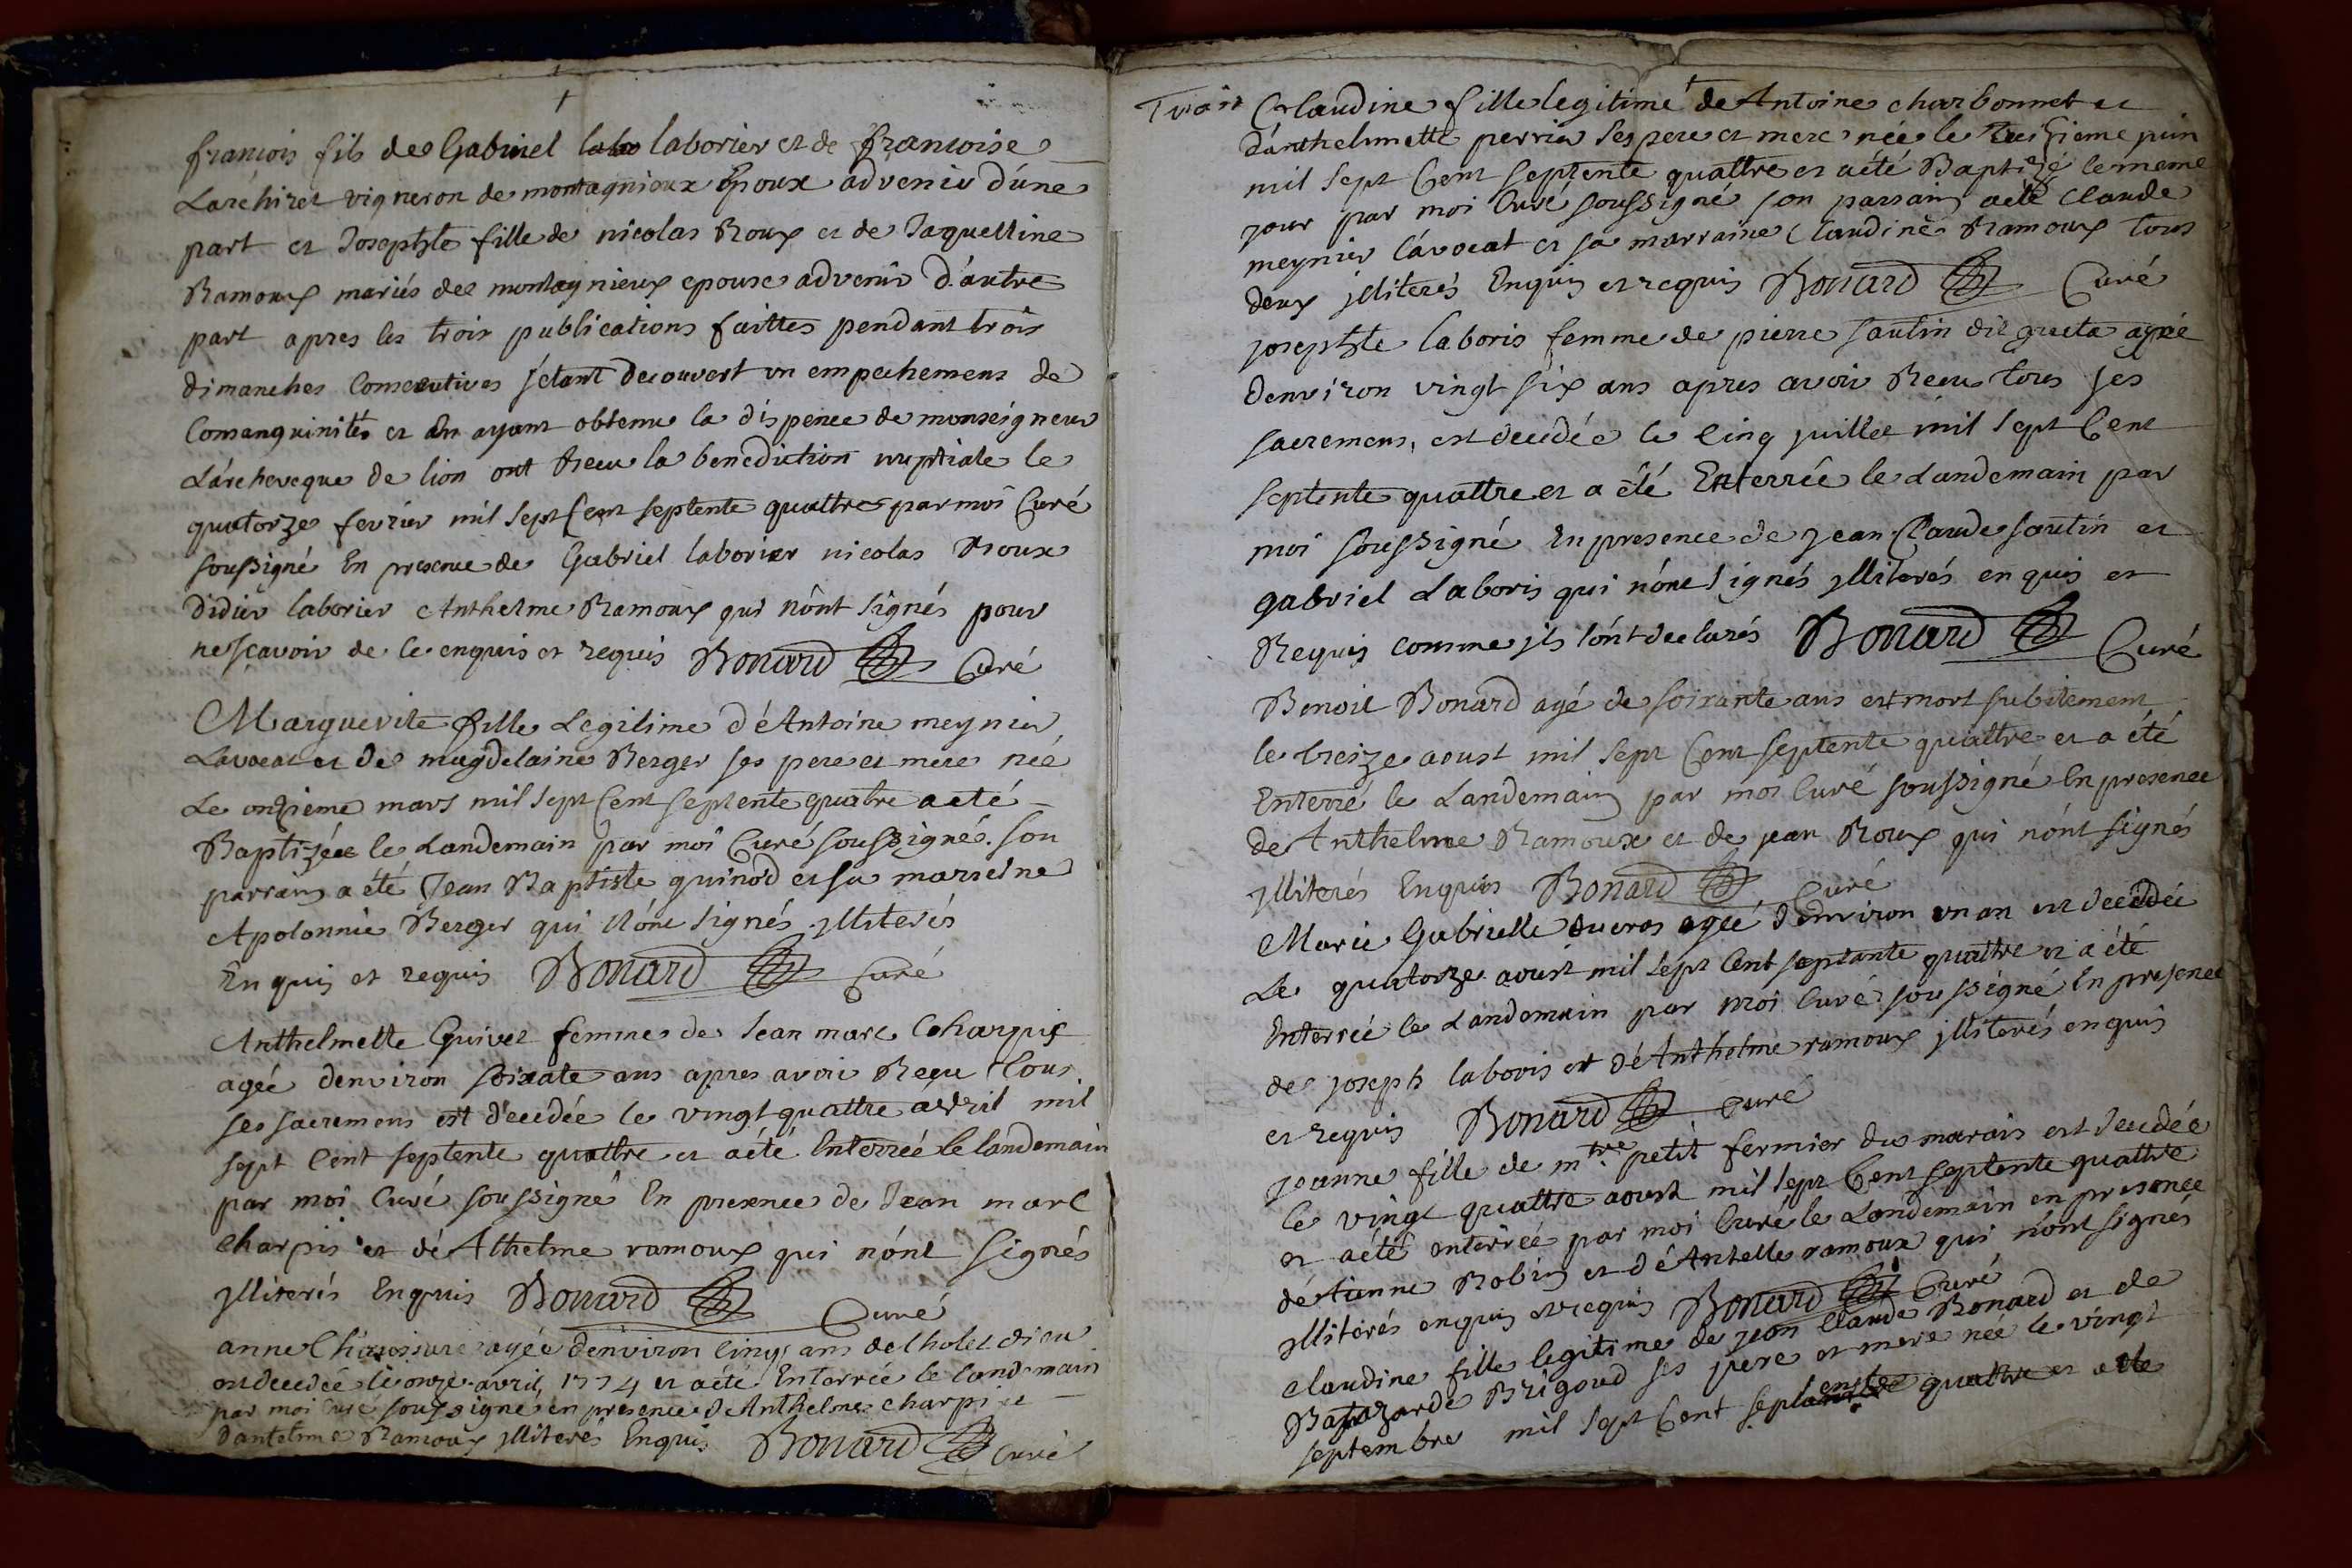 francois fils de Gabriel labo laborier et de francoise
Larchiret vigneron de montagnioux Epoux advenir d'une
part et Josephte fille de nicolas Roux et de Jaquelline
Ramoux mariés de montagnieux epouse advenir d'autre
part apres les trois publications faittes pendant trois
dimanches Consecutives s'étant decouvert un empechemens de
Consanguinités et En ayant obtenu la dispence de monseigneur
L'archeveque de lion ont Receu la benediction nuptiale le
quatorze fevrier mil sept Cent septente quattre par moi Curé
soussigné En presence de Gabriel laborier nicolas Roux
Didier laborier Anthelme Ramoux qui n'ont signés pour
ne scavoir de ce enquis et requis Bonard Curé
Marguerite fille Legitime d'Antoine meynier
Lavocat et de magdelaine Berger ses pere et mere née
Le onzieme mars mil sept Cent septente quatre a eté
Baptizée le Landemain par moi Curé soussigné. son
parrain a été Jean Baptiste quinod et sa marreine
Apolonnie Berger qui N'ont signés jlliterés
Enquis et requis Bonard Curé
Anthelmette Guivet femme de Jean marc Charpis
agée denviron soixate ans apres avoir Reçu Tous
ses sacremens est décédée le vingt quattre avril mil
sept Cent septente quattre et a été Enterrée le landemain
par moi Curé soussigné En presence de Jean marc
Charpis et dé Athelme ramoux qui n'ont signés
jlliterés Enquis Bonard Curé
anne agée denviron cinq ans de lhotel dieu
est decedée le onze avril 1774 et a eté Enterrée le landemain
par moi Curé soussigné en presence d'Anthelme charpi et
Dantelme Ramoux jlliterés Enquis Bonard Curé
Claudine fille legitime de Antoine charbonnet et
d'anthelmette perrin ses pere et mere née le treizieme juin
mil sept Cent septente quattre et a été Baptizé le meme
jour par moi Curé soussigné son parrain a eté Claude
meynier L'avocat et sa marraine Claudine Ramoux tous
deux jlliterés Enquis et requis Bonard Curé
josephte laboris femme de pierre sautin dit agée
denviron vingt six ans apres avoir Receu tous ses
sacremens, est decédée le cinq juillet mil sept Cent
septente quattre et a été Enterrée le Landemain par
moi soussigné En presence de jean Claude sautin et
gabriel Laboris qui n'ont signés jlliterés enquis et
Requis comme jls l'ont declarés Bonard Curé
Benoit Bonard agé de soixante ans est mort subitement
le treize aoust mil sept Cent septente quattre et a été
Enterré le Landemain par moi Curé soussigné En presence
de Anthelme Ramoux et de jean Roux qui n'ont signés
jlliterés Enquis Bonard Curé
Marie Gabrielle agée d'environ un an est decedée
Le quatorze aoust mil sept Cent septante quattre et a été
Enterrée le Landemain par moi Curé soussigné En presence
de joseph laboris et dé Anthelme ramoux jlliterés enquis
et requis Bonard Curé
jeanne fille de mtre petit fermier du marais est decedée
le vingt quattre aoust mil sept Cent septente quattre
et a été enterrée par moi Curé le Landemain en presence
détienne Robin et dé Antelle ramoux qui n'ont signés
jlliterés enquis et requis Bonard Curé
claudine fille legitime de jean Claude Bonard et de
Batazarde Brigoud ses pere et mere née le vingt
septembre mil sept Cent septente quattre et a ete